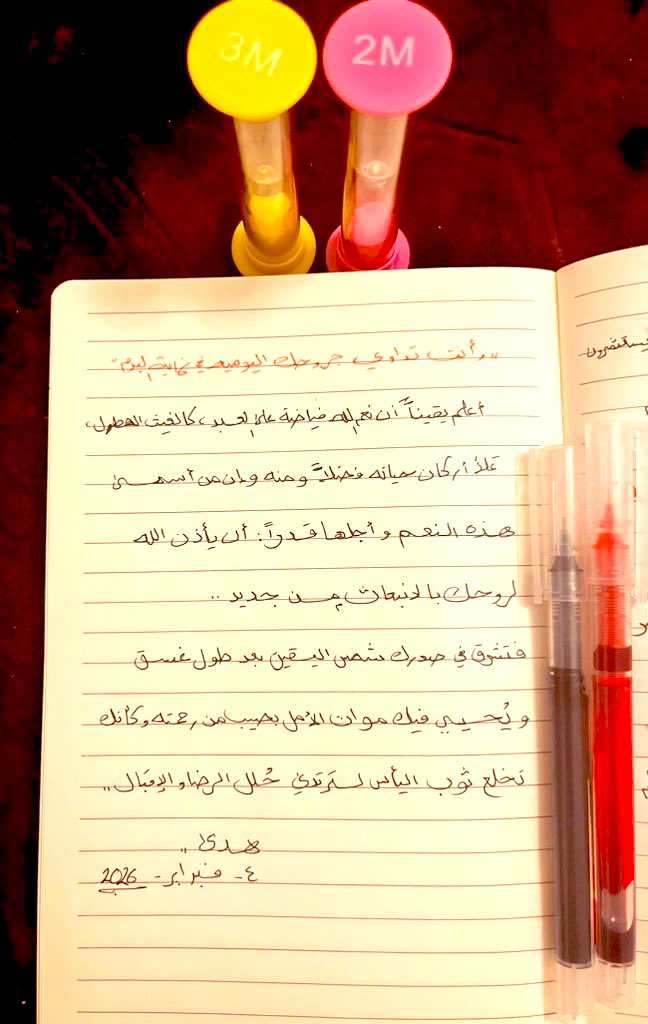 3M
2M
"وأنت تداوي جروحك اليوميه في نهاية اليوم"
أعلم يقيناً أن نعم الله فياضة على العبد، كالغيث الهطول،
تملأ أركان حياته فضلاً ومنه وإن من أسمى
هذه النعم وأجلها قدراً: أن يأذن الله
لروحك بالانبعاث من جديد ..
فتشرق في صدرك شمس اليقين بعد طول غسق
ويُحيي فيك موات الأمل بصيب من رحمته وكأنك
تخلع ثوب اليأس لترتدي حُلل الرضا والإقبال..
هدى ..
٤ - فبراير - 2026